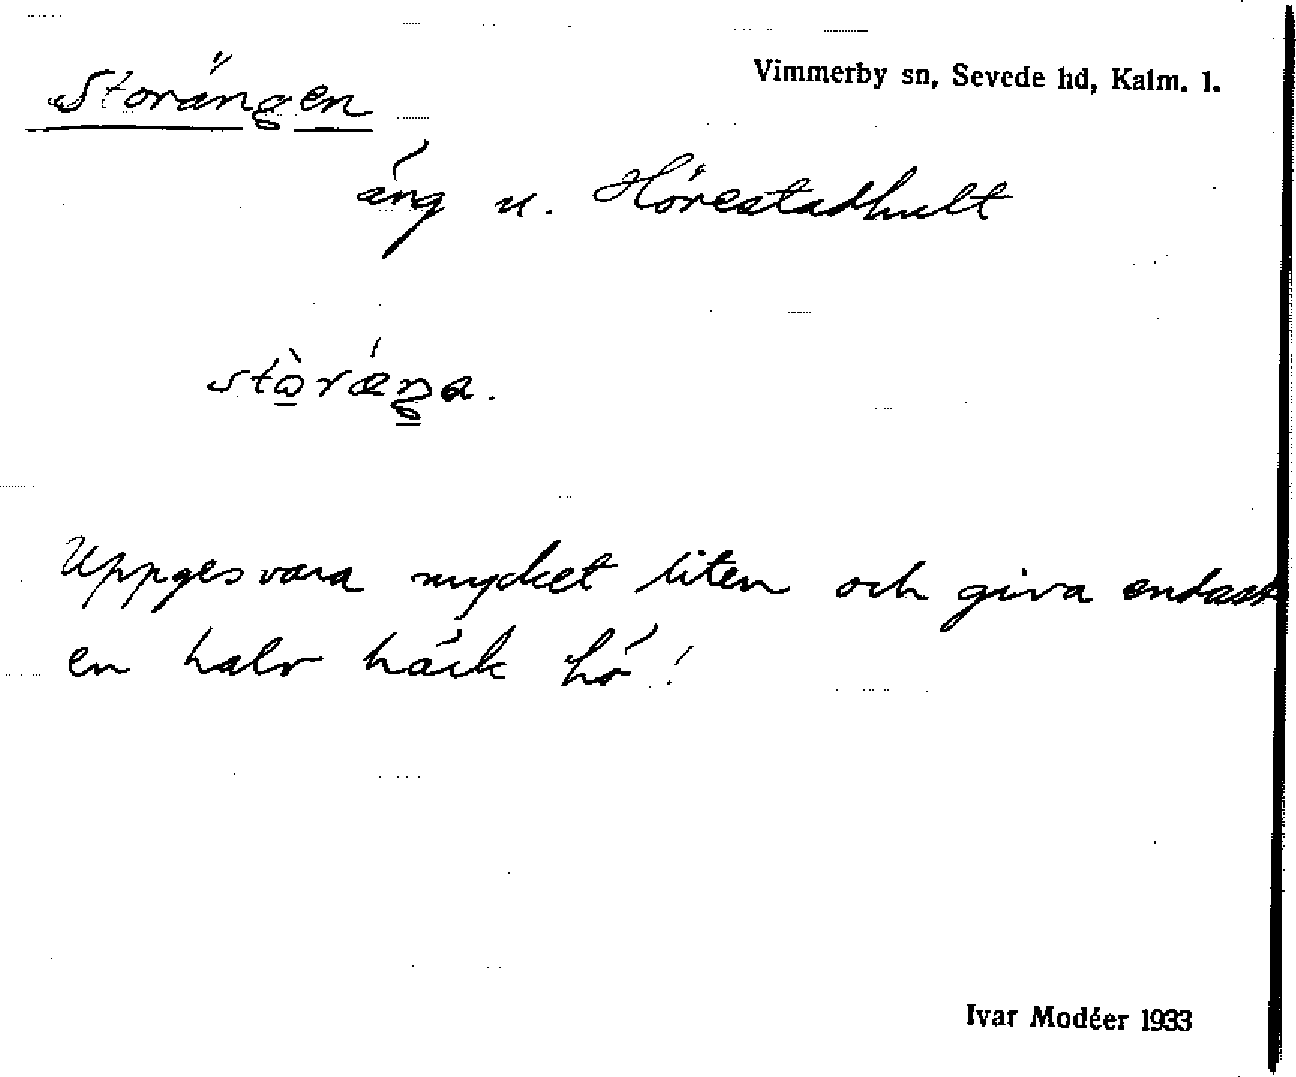 Storängen
Vimmerby sn, Sevede hd, Kalm. l.
äng u. Hörestadhult
stòrǽŋa.
Uppges vara mycket liten och giva endast
en halv häck hö!
Ivar Modéer 1933